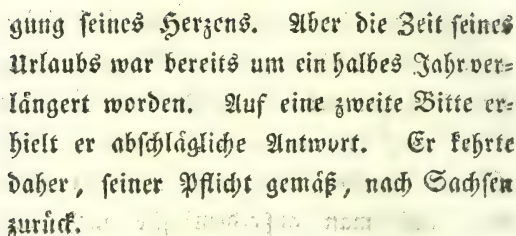 gung ſeines Herzens. Aber die Zeit ſeines
Urlaubs war bereits um ein halbes Jahr ver⸗
längert worden. Auf eine zweite Bitte er⸗
hielt er abſchlägliche Antwort. Er kehrte
daher, ſeiner Pflicht gemäß, nach Sachſen
zurück.